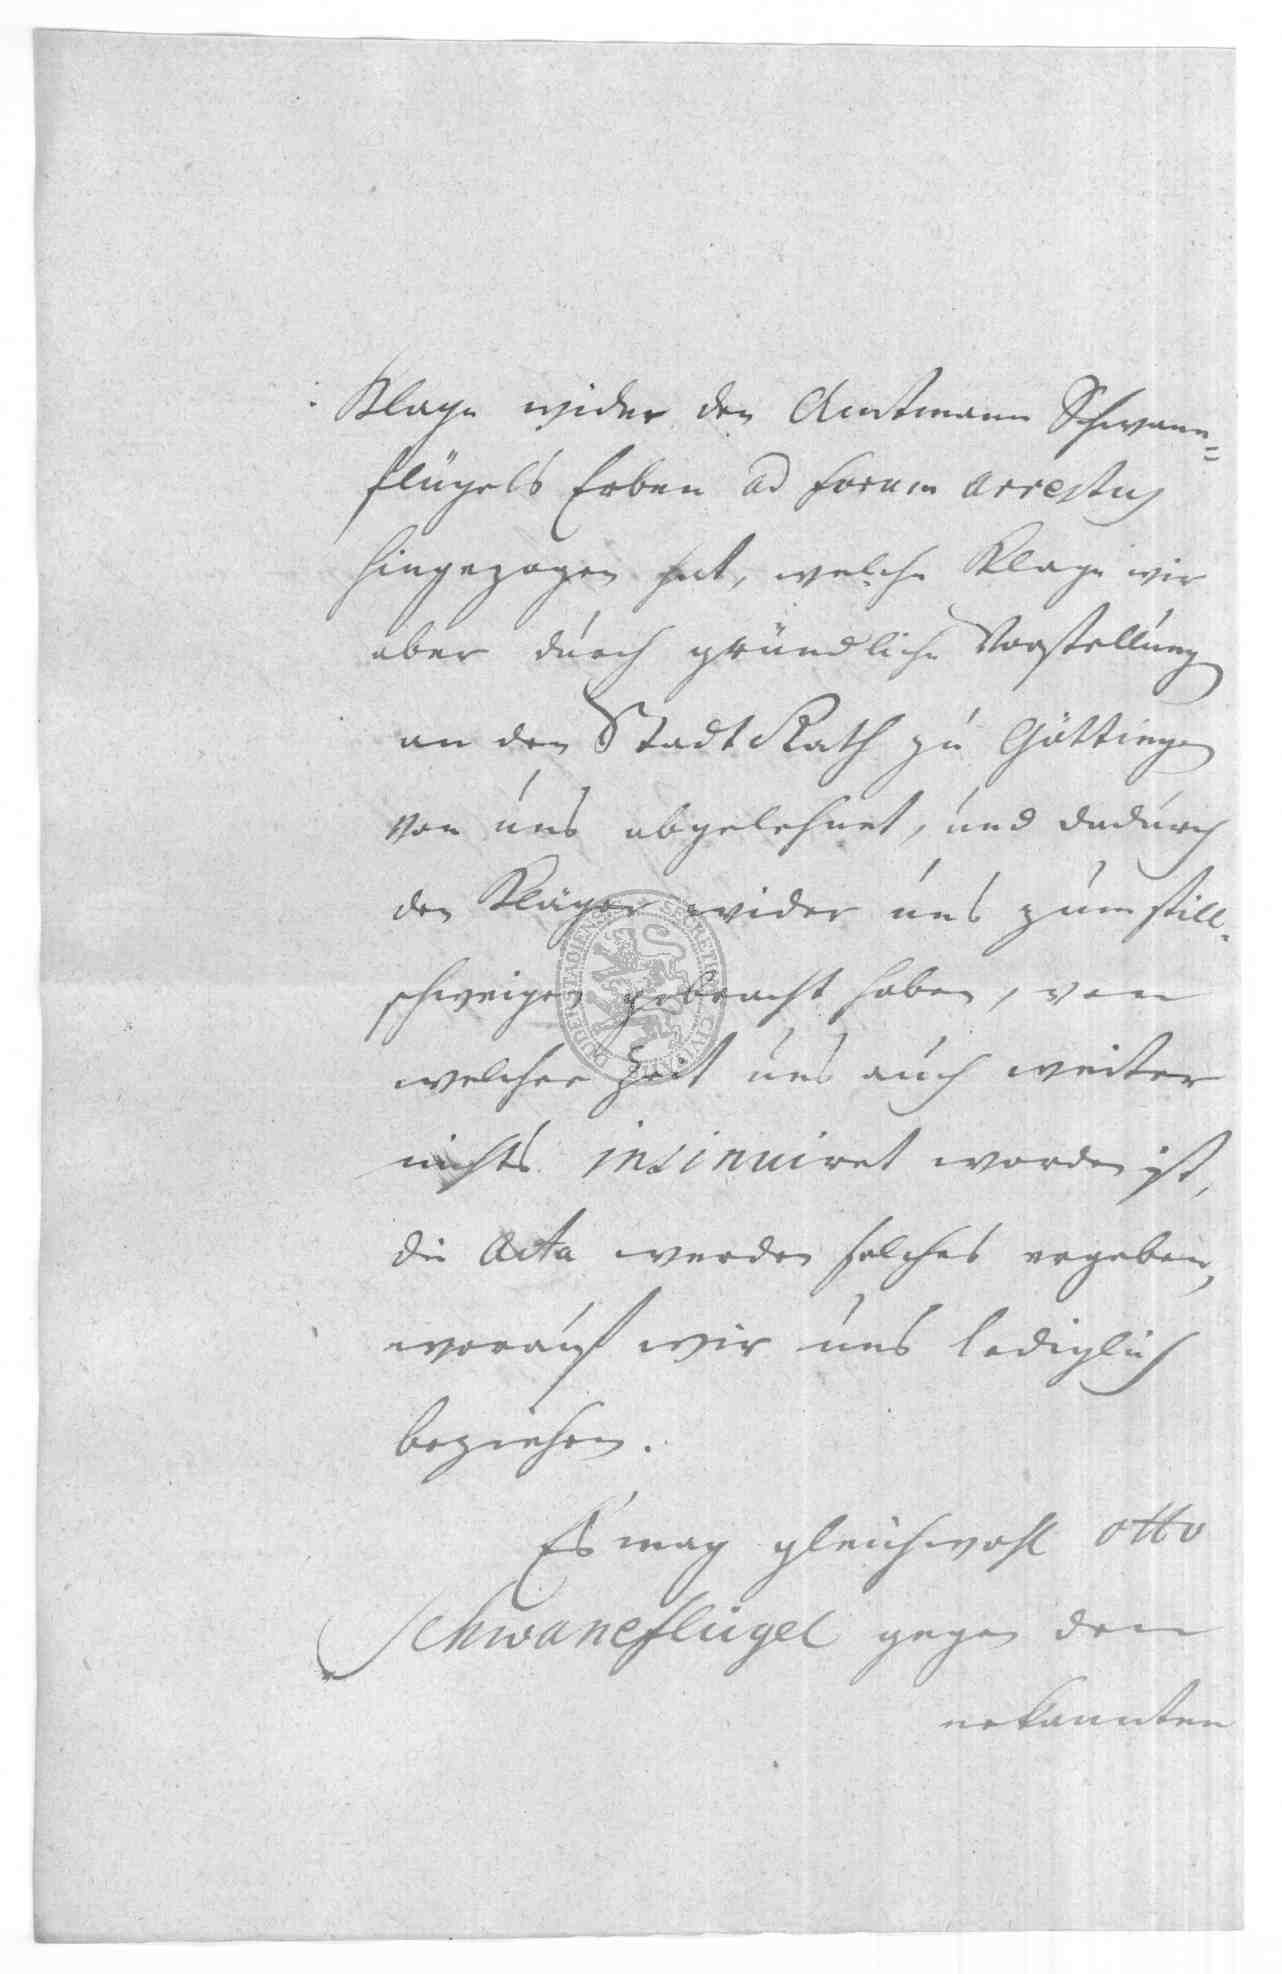 Klage wider den Amtmann Schwane=
flügels Erben ad forum arrestus
hingezogen hat, welche Klage wir
aber durch gründliche Vorstellung
an den Stadt Rath zu Göttingen
von uns abgelehnet, und dadurch
den Kläger wider uns zum still-
schweigen gebracht haben, von
welcher Zeit uns auch weiter
nichts insinuiret worden ist,
die Acta werden solches ergeben,
worauf wir uns lediglich
beziehen.
Es mag gleichwohl Otto
Schwaneflügel gegen den
erkannten